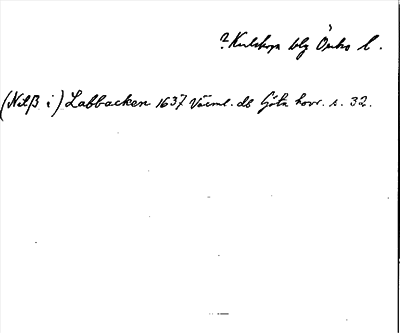 ? Kulskoga blg Örebro l.
(Nilß i) Labbacken 1637 Värml. db Göta hovr. s. 32.